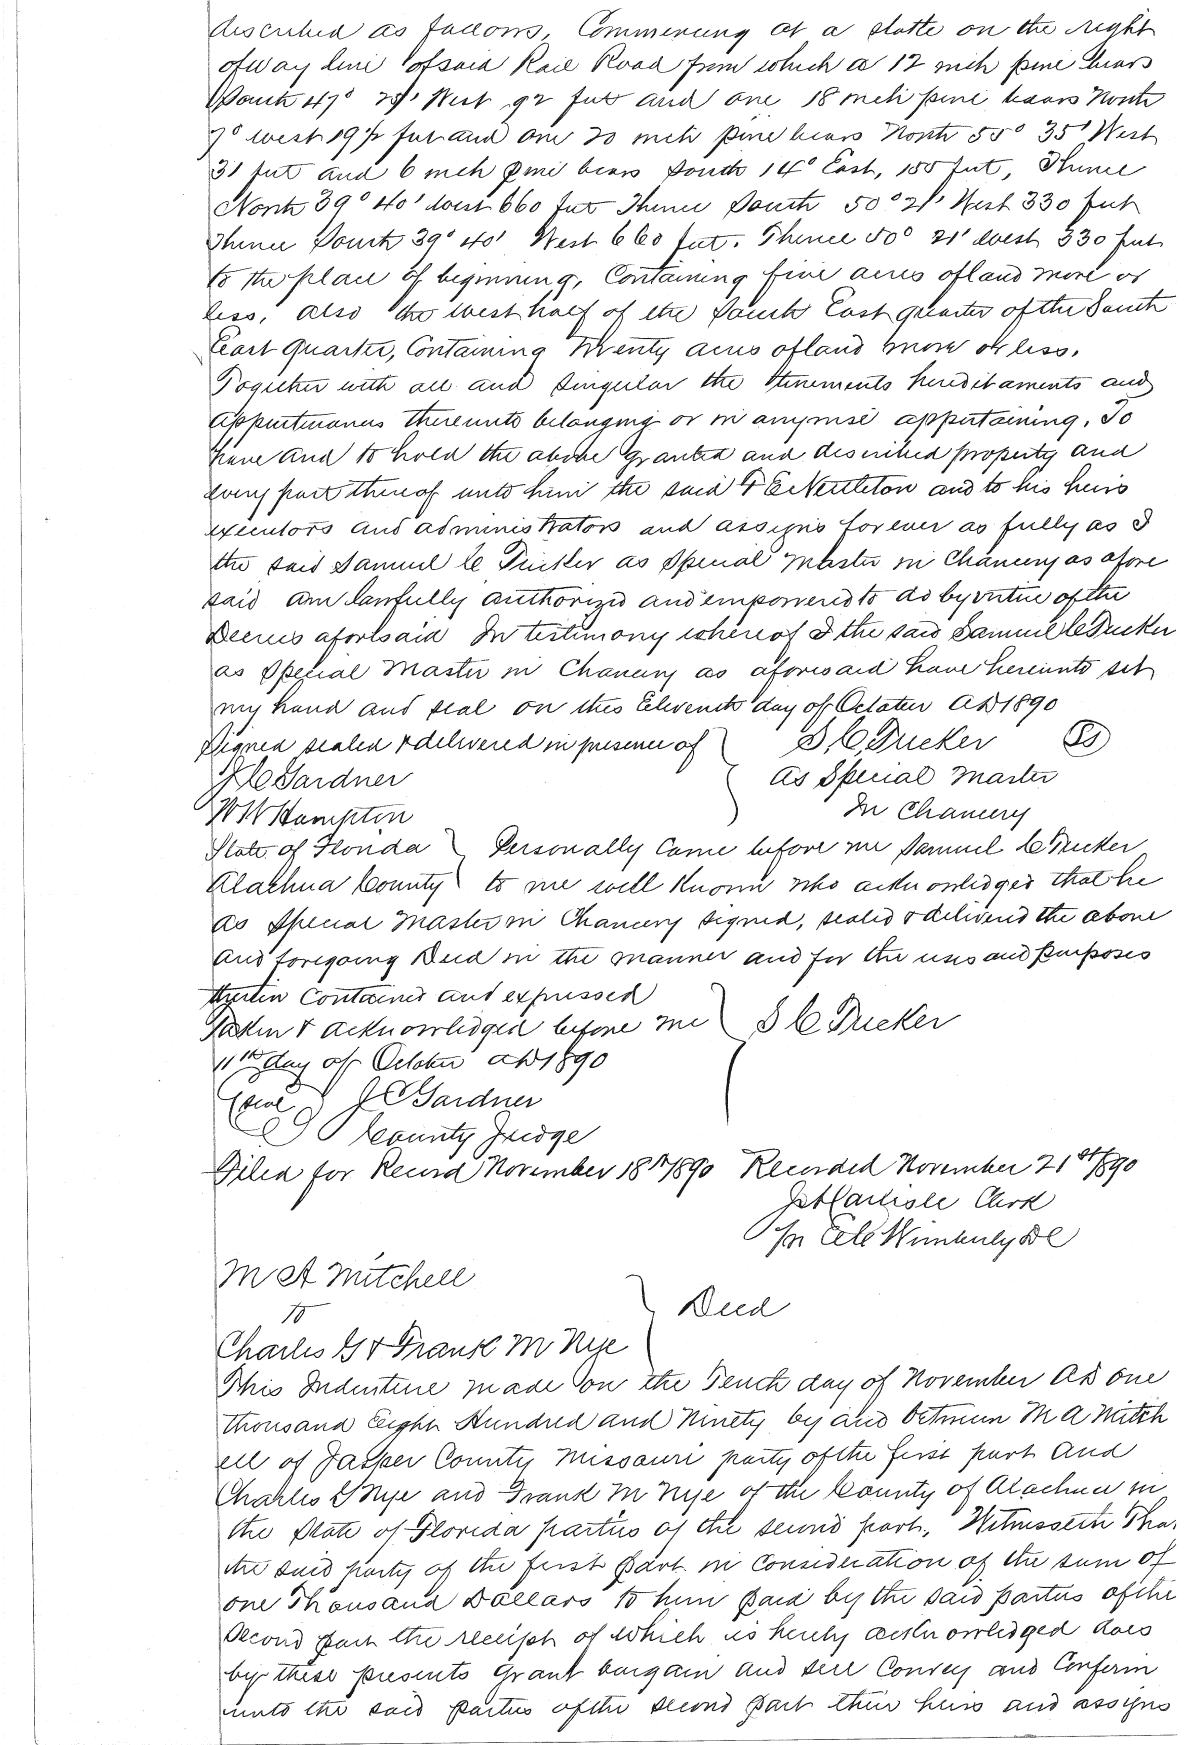 described as follows, Commencing at a statte on the right
of way line of said Rail Road from which a 12 inch pine bears
South 47° West 92 feet and one 18 inch pine bears North
7° west 19½ feet and one 20 inch pine bears North 55° 35' West
31 feet and 6 inch pine bears South 14° East, 155 feet, Thence
North 39° 40' West 660 feet Thence South 50° 21' West 330 feet
Thence South 39° 40' West 660 feet. Thence 50° 21' West 330 feet
to the place of beginning, Containing five acres of land more or
less, also the west half of the South East quarter of the South
East Quarter, Containing Twenty acres of land more or less.
Together with all and singular the tenements hereditaments and
appurtenances thereunto belonging or in anywise appertaining. To
have and to hold the above granted and described property and
every part thereof unto him the said T E Nettleton and to his heirs
executors and administrators and assigns forever as fully as I
the said Samuel C Tucker as Special Master in Chancery as afore
said am lawfully authorized and empowered to do by virtue of the
Decrees aforesaid In testimony whereof I the said Samuel C Tucker
as Special Master in Chancery as aforesaid have hereunto set
my hand and seal on this Eleventh day of October AD 1890
Signed sealed & delivered in presence of S. C. Tucker
J C Gardner As Special Master
W W Hampton In Chancery
State of Florida Personally Came before me Samuel C Tucker
Alachua County to me well Known who acknowledged that he
as Special Master in Chancery signed, sealed & delivered the above
and foregoing Deed in the manner and for the uses and purposes
therein Contained and expressed
Taken & acknowledged before me S C Tucker
11th day of October AD 1890
Seal J C Gardner
County Judge
Filed for Record November 18th 1890 Recorded November 21st 1890
Carlisle Clerk
Wimberly DC
M A Mitchell
to Deed
Charles G & Frank M Nye
This Indenture made on the Tenth day of November AD one
thousand Eight Hundred and Ninety by and between M A Mitch
ell of Jasper County Missouri party of the first part and
Charles G Nye and Frank M Nye of the County of Alachua in
the State of Florida parties of the second part, Witnesseth Tha
the said party of the first part in consideration of the sum of
one Thousand Dollars to him paid by the said parties of the
Second part the receipt of which is hereby acknowledged does
by these presents Grant bargain and sell Convey and Confirm
unto the said parties of the second part their heirs and assigns